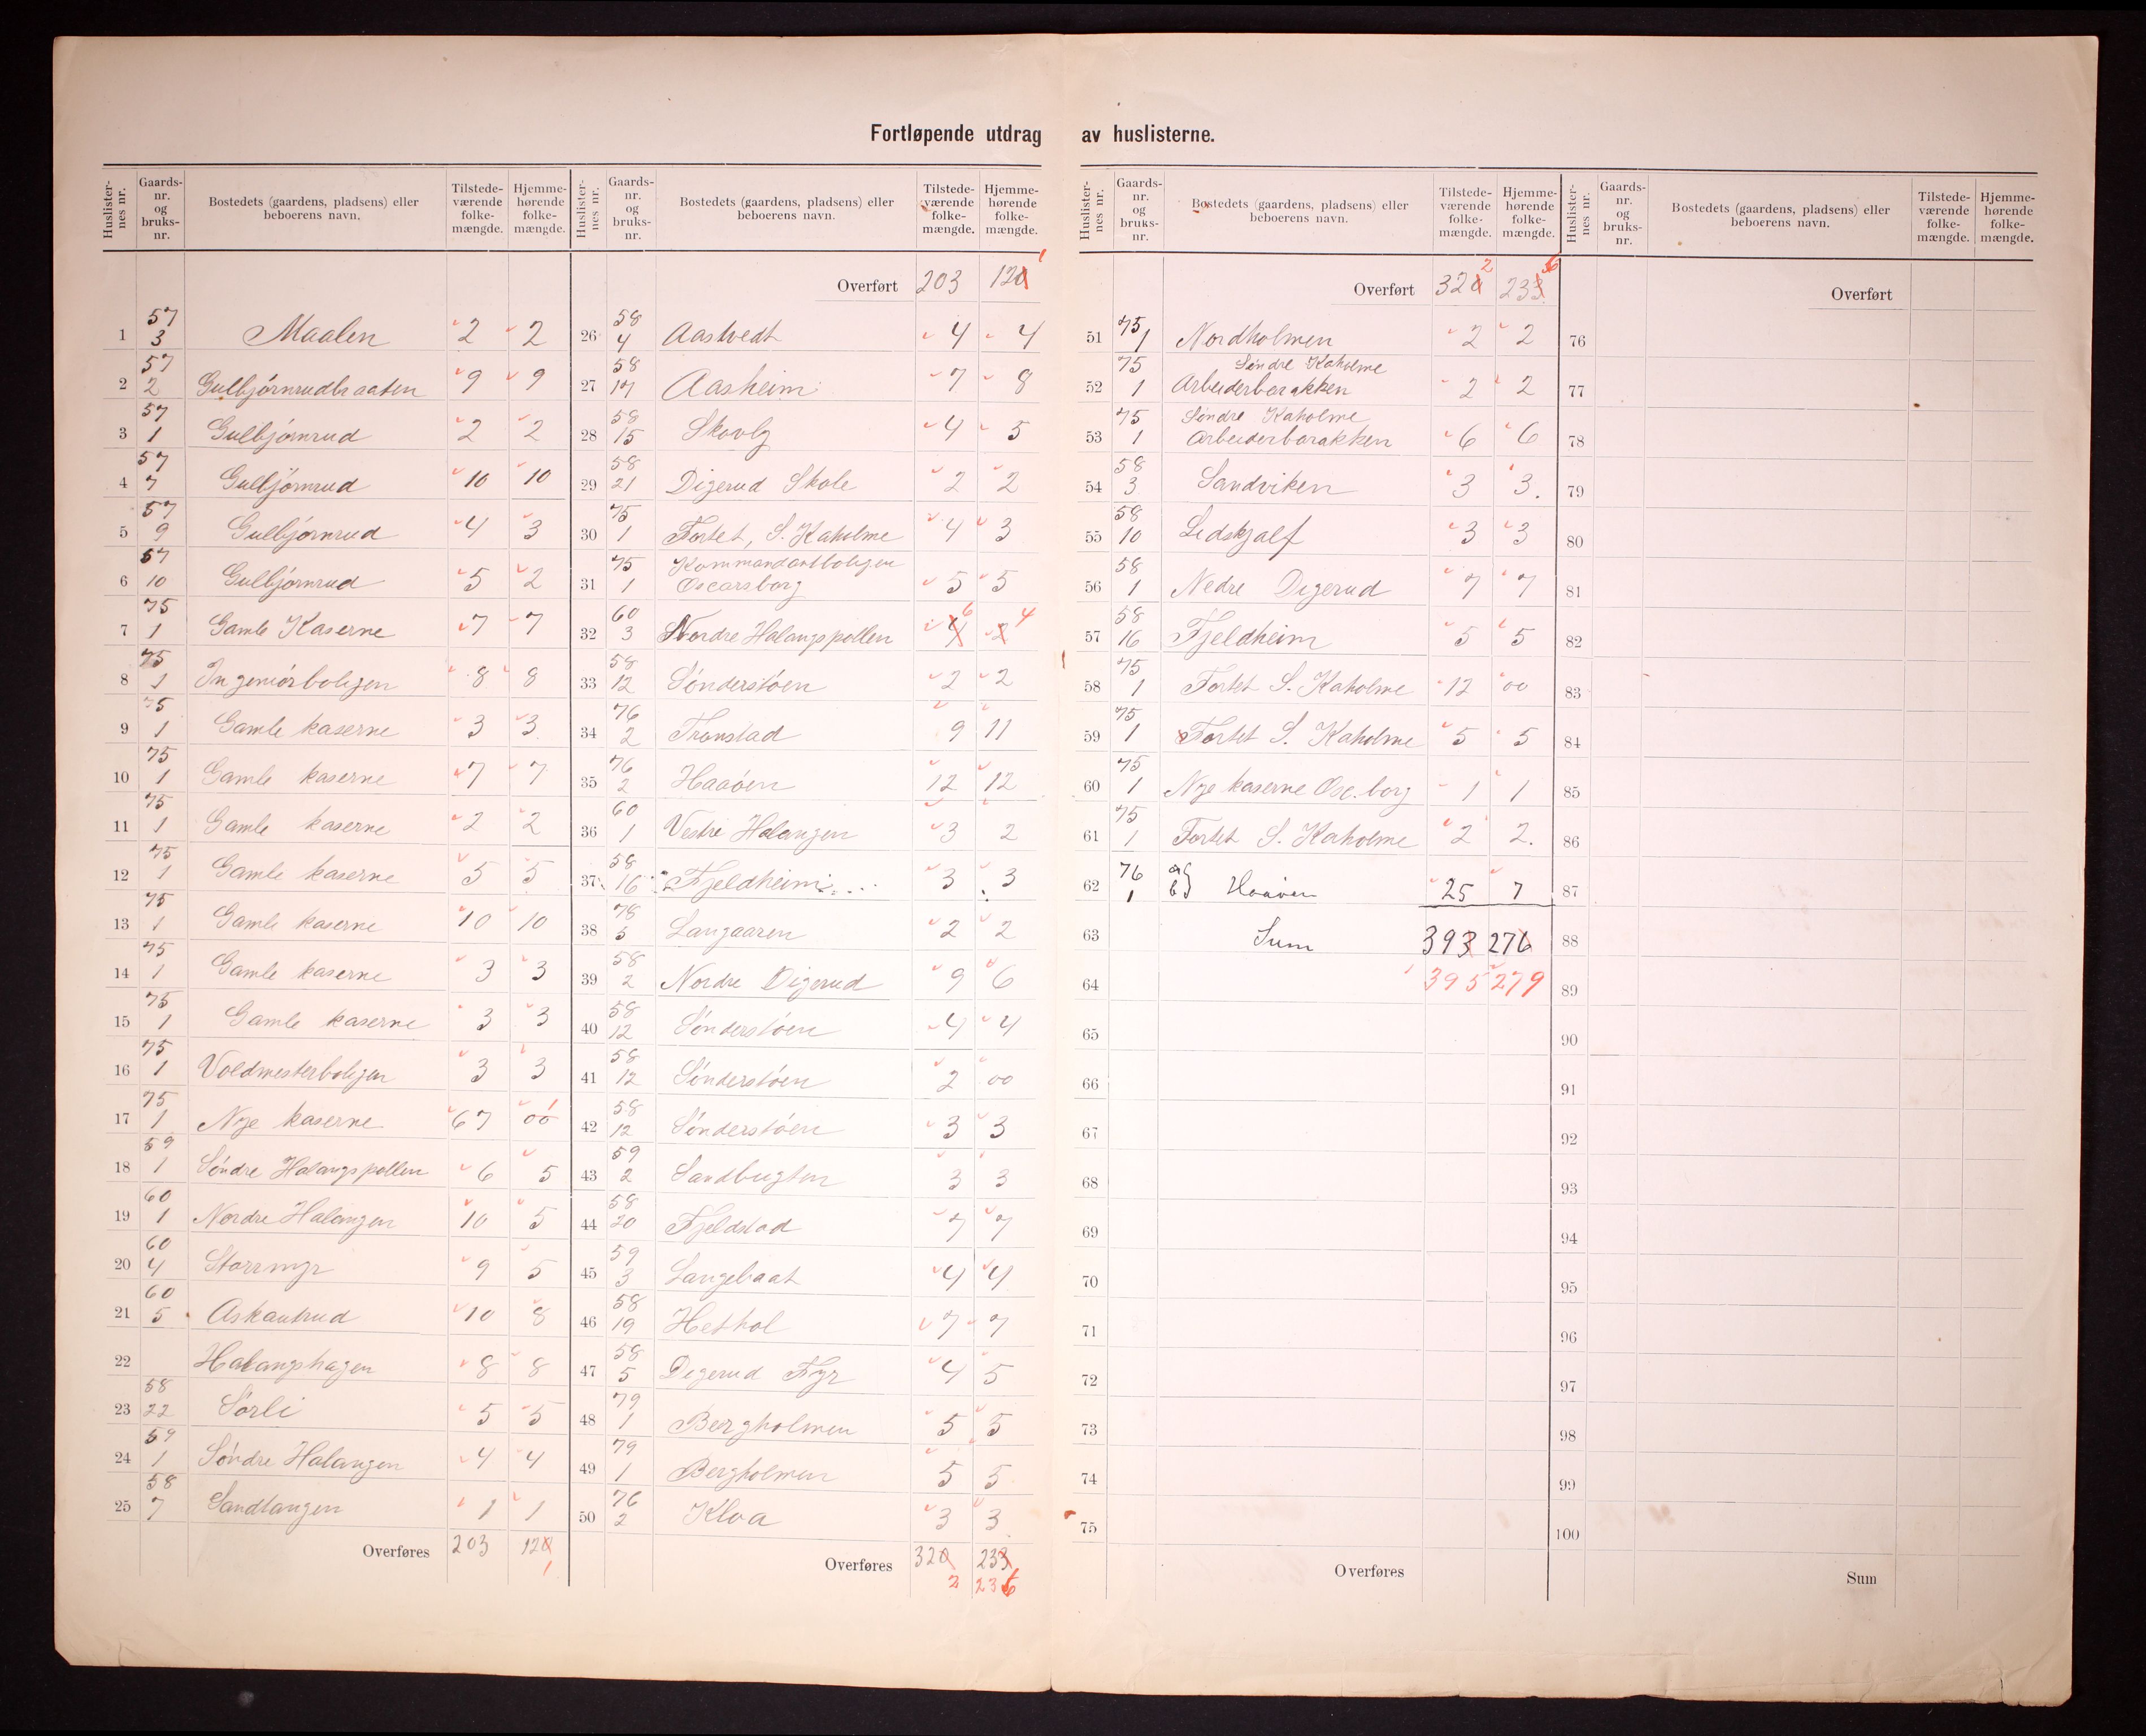 Fortløpende utdrag av huslisterne.
Huslister-nes nr. Gaards-nr. og bruks-nr. Bostedets (gaardens, pladsens) eller beboerens navn. Tilstede-værende folke-mængde. Hjemme-hørende folke-mængde.
1 57/3 Maalen 2 2
2 57/2 Gulbjørnrudbraaten 9 9
3 57/1 Gulbjørnrud 2 2
4 57/7 Gulbjørnrud 10 10
5 57/9 Gulbjørnrud 4 3
6 57/10 Gulbjørnrud 5 2
7 75/1 Gamle Kaserne 7 7
8 75/1 Ingeniørboligen 8 8
9 75/1 Gamle kaserne 3 3
10 75/1 Gamle kaserne 7 7
11 75/1 Gamle kaserne 2 2
12 75/1 Gamle kaserne 5 5
13 75/1 Gamle kaserne 10 10
14 75/1 Gamle kaserne 3 3
15 75/1 Gamle kaserne 3 3
16 75/1 Voldmesterboligen 3 3
17 75/1 Nye kaserne 67 00 1
18 59/1 Søndre Halangspollen 6 5
19 60/1 Nordre Halangen 10 5
20 60/4 Storrmyr 9 5
21 60/5 Askautrud 10 8
22 Halangshagen 8 8
23 58/22 Sørli 5 5
24 59/1 Søndre Halangen 4 4
25 58/7 Sandtangen 1 1
Overføres 203 120 1
Huslister-nes nr. Gaards-nr. og bruks-nr. Bostedets (gaardens, pladsens) eller beboerens navn. Tilstede-værende folke-mængde. Hjemme-hørende folke-mængde.
Overført 203 120 1
26 58/4 Aastvedt 4 4
27 58/17 Aasheim 7 8
28 58/15 Skovly 4 5
29 58/21 Digerud Skole 2 2
30 75/1 Fortet, S. Kaholme 4 3
31 75/1 Kommandantboligen
Oscarsborg 5 5
32 60/3 Nordre Halangspollen 4 6 2 4
33 58/12 Sønderstøen 2 2
34 76/2 Tronstad 9 11
35 76/2 Haaøen 12 12
36 60/1 Vestre Halangen 3 2
37 58/16 Fjeldheim 3 3
38 78/5 Langaaren 2 2
39 58/2 Nordre Digerud 9 6
40 58/12 Sønderstøen 4 4
41 58/12 Sønderstøen 2 00
42 58/12 Sønderstøen 3 3
43 59/2 Sandbugten 3 3
44 58/20 Fjeldstad 7 7
45 59/3 Langebaat 4 4
46 58/19 Hethol 7 7
47 58/5 Digerud Fyr 4 5
48 79/1 Bergholmen 5 5
49 79/1 Bergholmen 5 5
50 76/2 Kloa 3 3
Overføres 320 233
2 236
Huslister-nes nr. Gaards-nr. og bruks-nr. Bostedets (gaardens, pladsens) eller beboerens navn. Tilstede-værende folke-mængde. Hjemme-hørende folke-mængde.
Overført 320 2 233 6
51 75/1 Nordholmen 2 2
52 75/1 Søndre Kaholme
Arbeiderbarakken 2 2
53 75/1 Søndre Kaholme
Arbeiderbarakken 6 6
54 58/3 Sandviken 3 3.
55 58/10 Lidskjalf 3 3
56 58/1 Nedre Digerud 7 7
57 58/16 Fjeldheim 5 5
58 75/1 Fortet S. Kaholme 12 00
59 75/1 Fortet S. Kaholme 5 5
60 75/1 Nye kaserne Osc.borg 1 1
61 75/1 Fortet S. Kaholme 2 2.
62 76/1 a} b} Haaøen 25 7
63 Sum 393 276
64 395 279
65
66
67
68
69
70
71
72
73
74
75
Overføres
Huslister-nes nr. Gaards-nr. og bruks-nr. Bostedets (gaardens, pladsens) eller beboerens navn. Tilstede-værende folke-mængde. Hjemme-hørende folke-mængde.
Overført
76
77
78
79
80
81
82
83
84
85
86
87
88
89
90
91
92
93
94
95
96
97
98
99
100
Sum